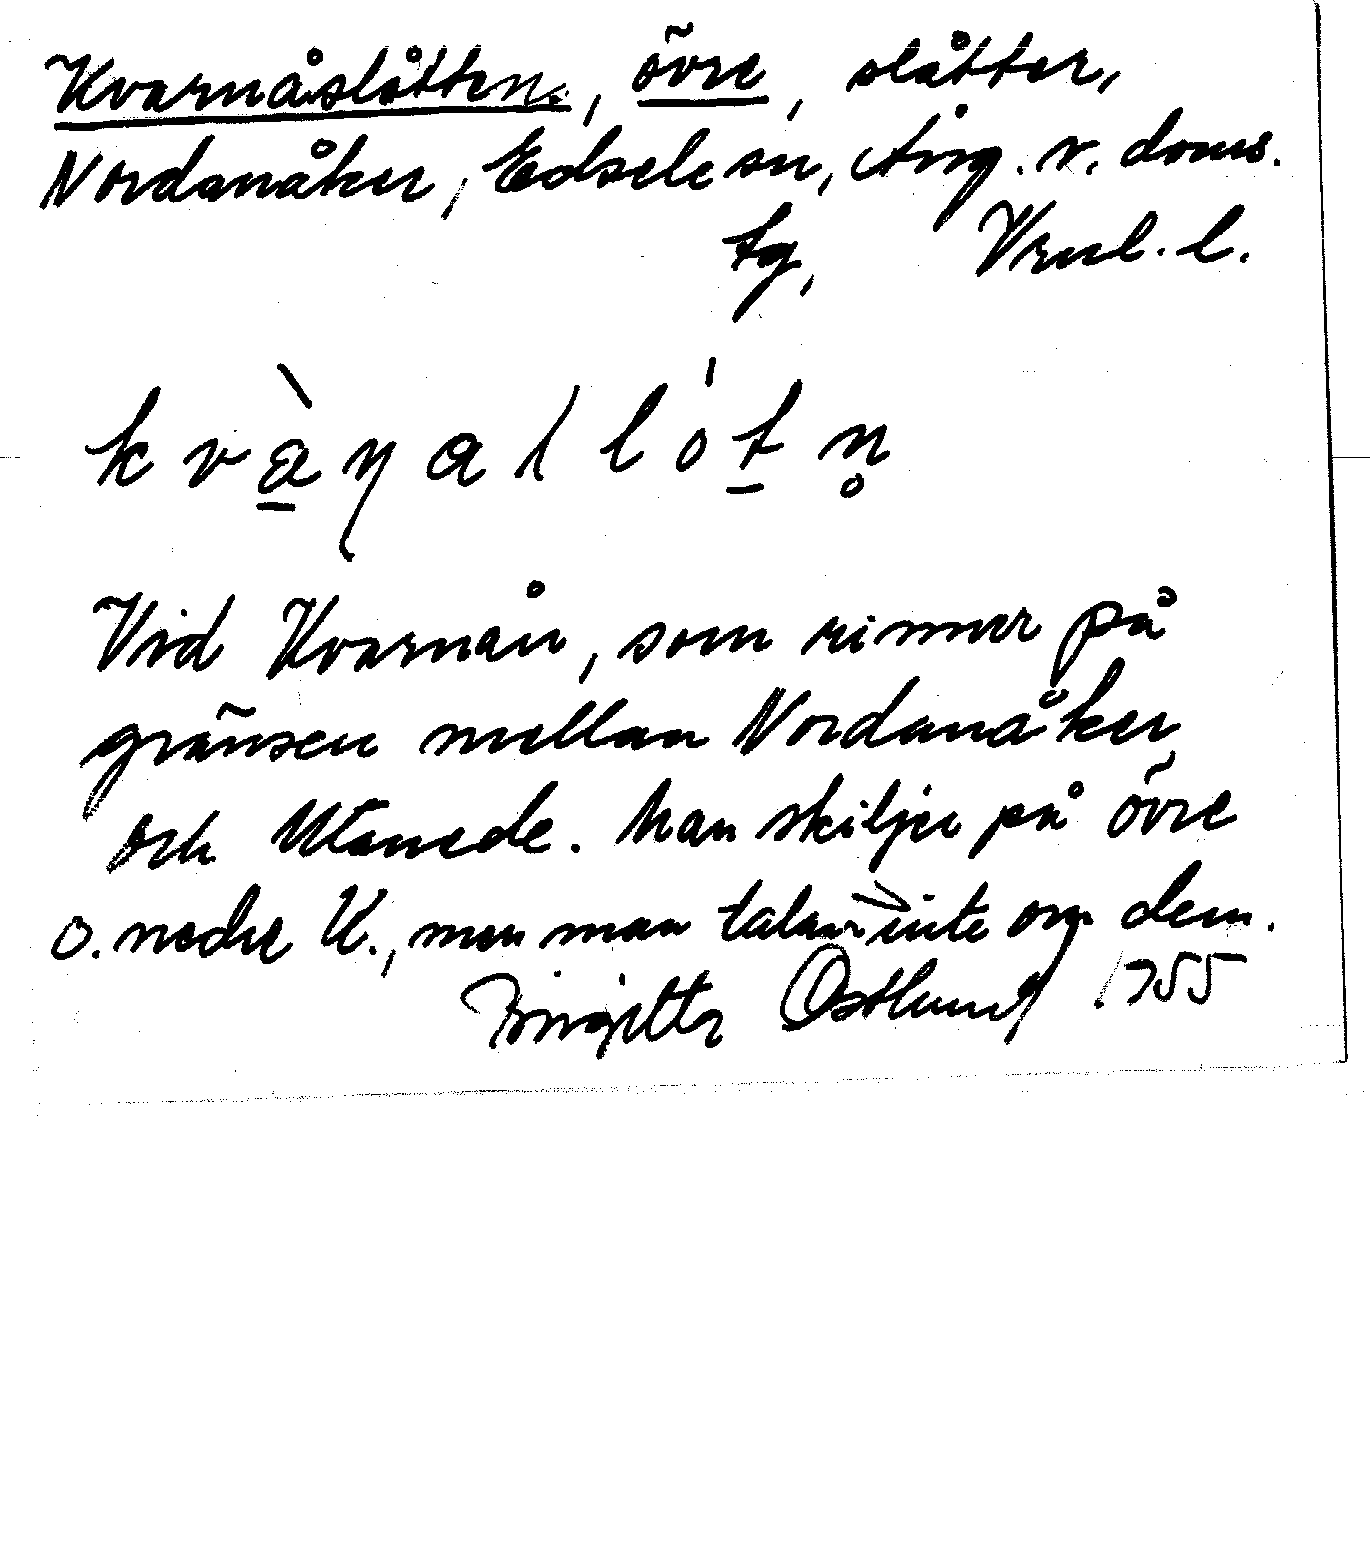 Kvarnåslåtten, övre, slåtter,
Nordanåker, Edsele sn, Ång. v. doms.
tg, Vrnl. l.
Vid Kvarnån, som rinner på
gränsen mellan Nordanåker
och Utanede. Man skiljer på övre
o. nedre K., men man talar inte om dem.
Birgitta Östlund 1955